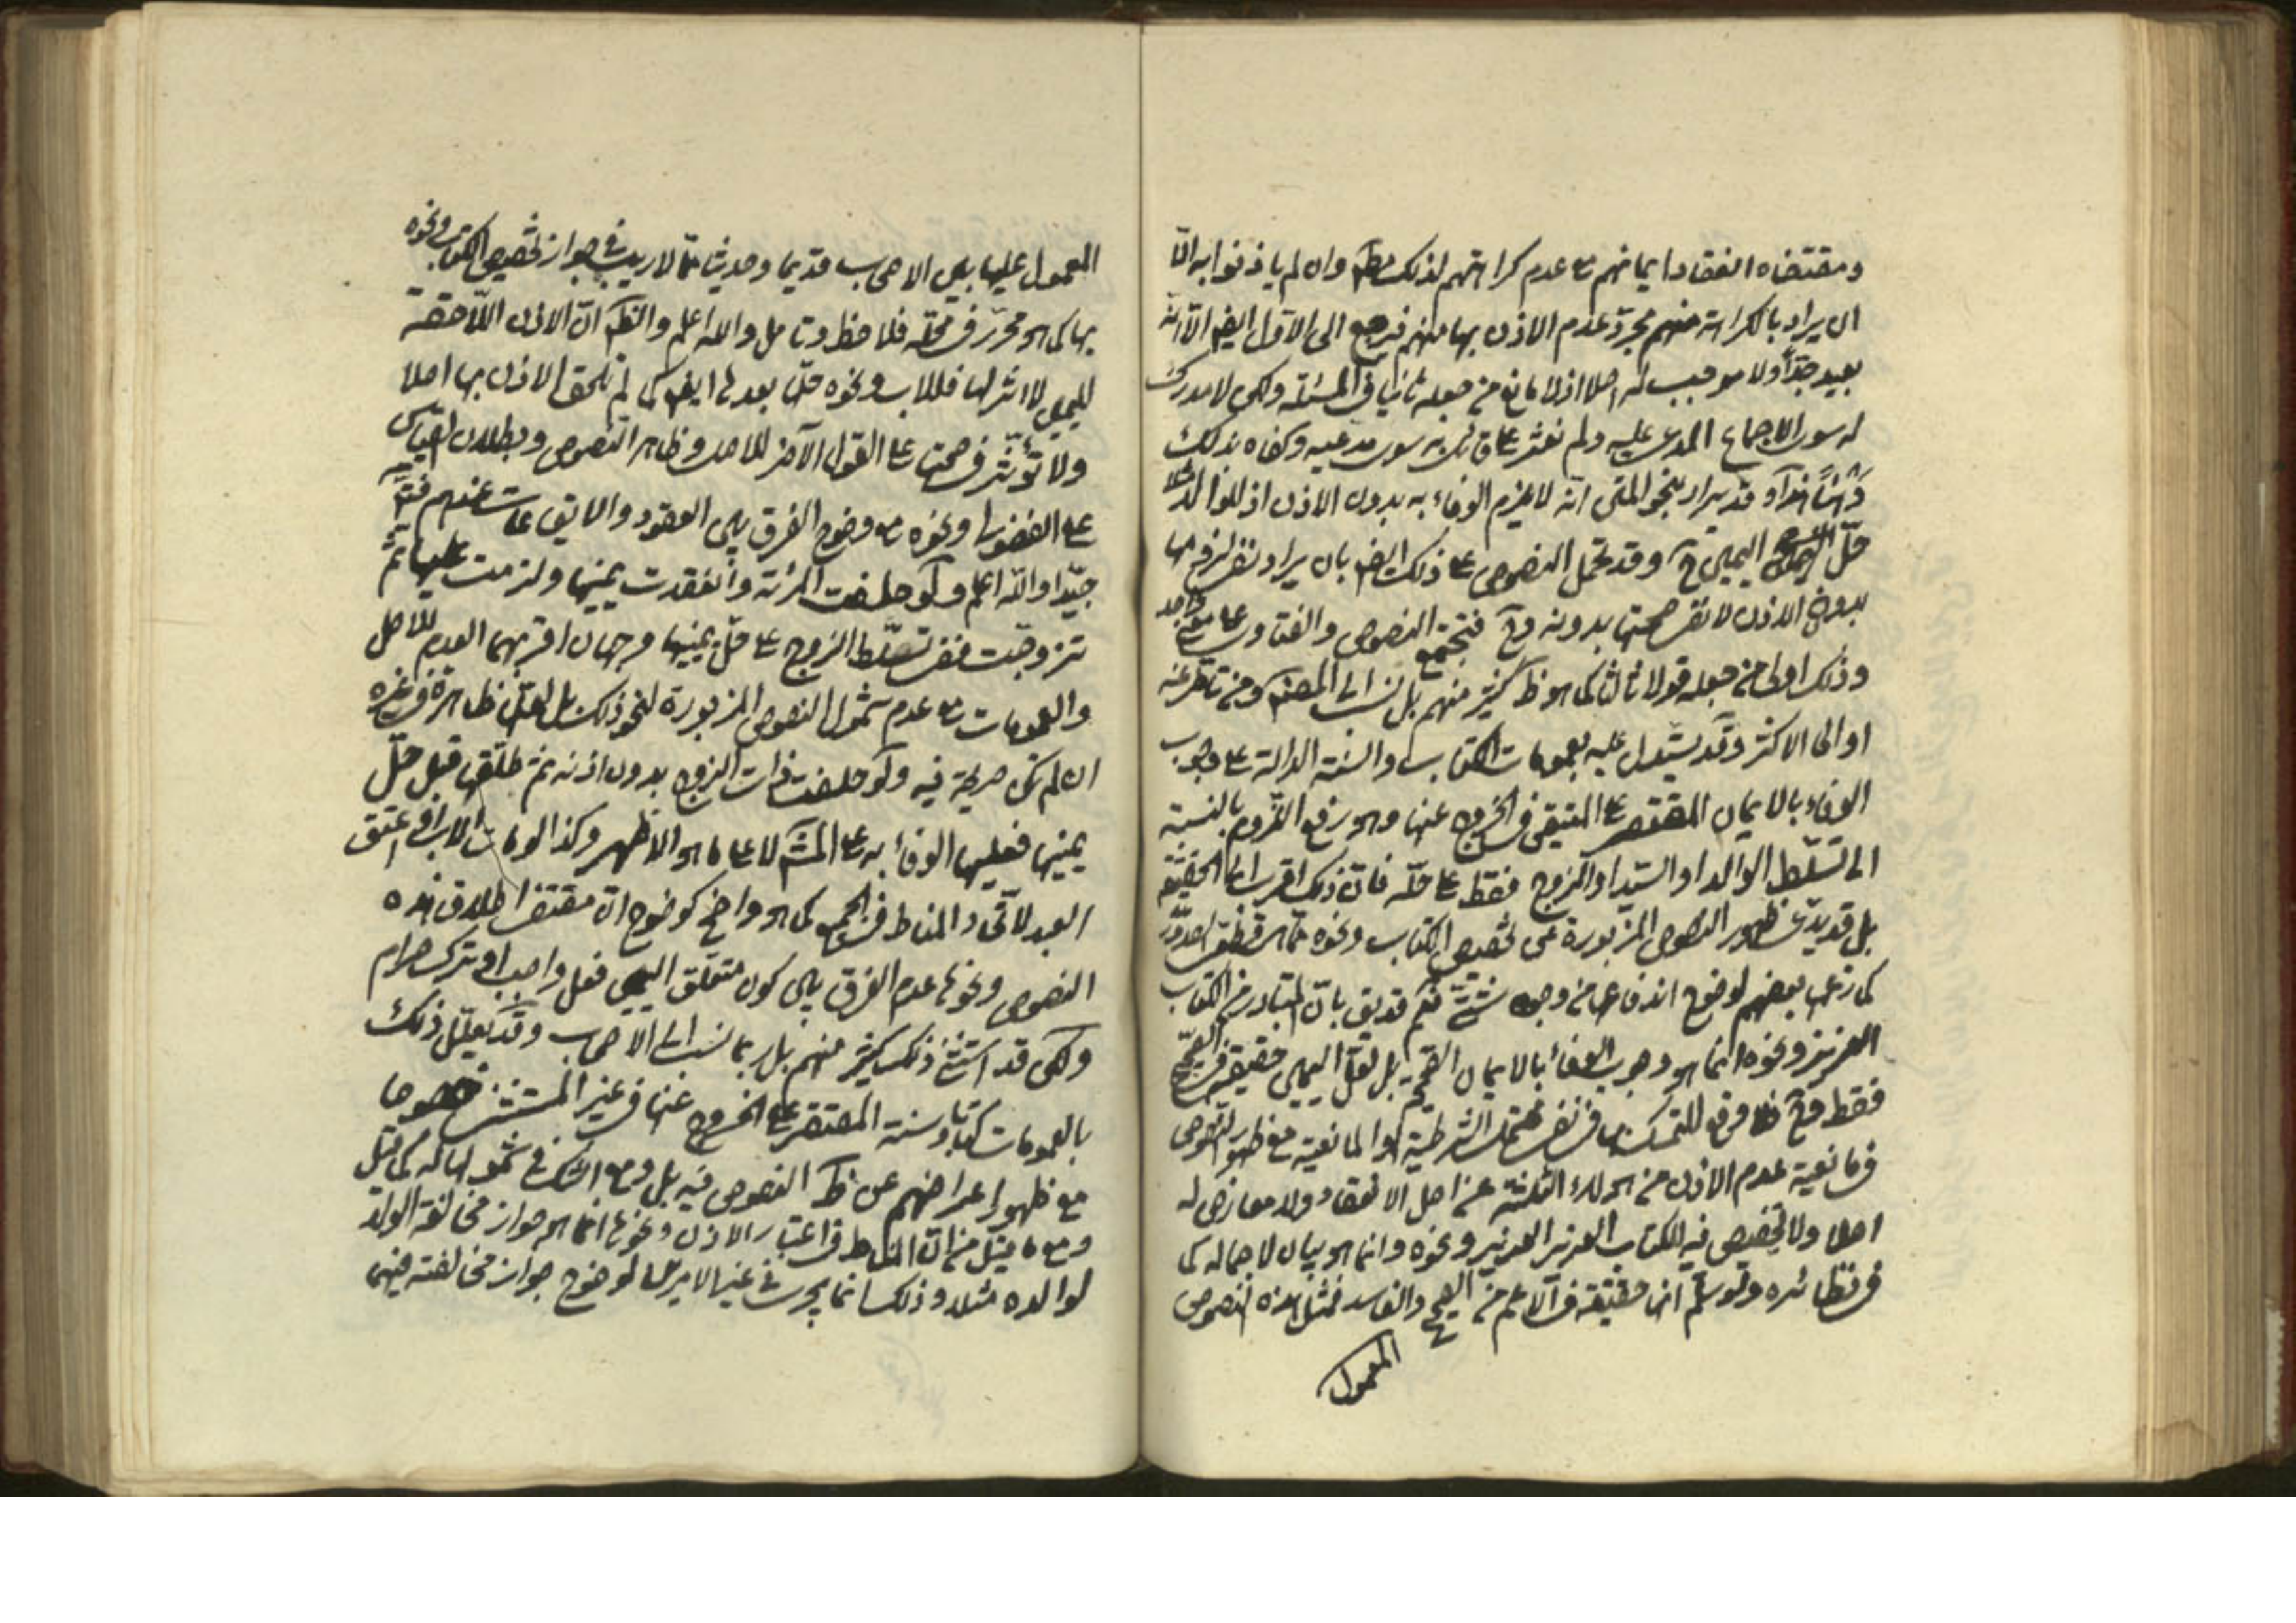 ومقتضاه انعقاد ايمانهم مع عدم كراهتهم لذلك مطلقا وان لم ياذنوا به الا
ان يراد بالكراهة منهم مجرد عدم الاذن بها منهم فيرجع الى الاول ايضا الا انه
بعيد جدا ولا موجب له اصلا اذ لا مانع من جعله ثانيا في المسئلة ولكن لا مدرك
له سوى الاجماع المدعى عليه ولم نعثر على قائل به سوى مدعيه وكفاه بذلك
وهنا هذا وقد يراد بنحو المتن انه لا يلزم الوفاء به بدون الاذن اذ للوالد مثلا
حل اليمين ح وقد تحمل النصوص على ذلك ايضا بان يراد نفي لزومها
بدون الاذن لا نفي صحتها بدونه وح فتجتمع النصوص والفتاوى على معنى واحد
وذلك اولى من جعله قولا ثالثا كما هو ظ كثير منهم بل نسب الى المصنف ومن تاخر عنه
او الى الاكثر وقد يستدل عليه بعمومات الكتاب والسنة الدالة على وجوب
الوفاء بالايمان المقتصر على المتيقن في الخروج عنها وهو رفع اللزوم بالنسبة
الى تسلط الوالد او السيد او الزوج فقط على حله فان ذلك اقرب الى الحقيقة
بل قد يدعى ظهور النصوص المزبورة في تخصيص الكتاب ونحوه
كما زعمها بعضهم لوضوح اندفاعها من وجوه شتى نعم قد يق بان المتبادر من الكتاب
العزيز ونحوه انما هو وجوب الوفاء بالايمان الصحيحة بل لعل اليمين حقيقة في الصحيح
فقط وح فلا وقع للتمسك بها في نفي محتمل الشرطية او المانعية مع ظهور النصوص
في مانعية عدم الاذن من هؤلاء الثلثة عن اصل الانعقاد ولا معارض له
اصلا ولا تخصيص فيه للكتاب العزيز العزيز ونحوه وانما هو بيان لاجماله كما
في نظائره ولو سلم انها حقيقة في الاعم من الصحيح والفاسد فمثل هذه النصوص
المعمول
المعمول عليها بين الاصحاب قديما وحديثا مما لا ريب في جواز تخصيص الكتاب ونحوه
بها كما هو محرر في محله فلاحظ وتامل والله اعلم والظ ان الاذن اللاحقة
لليمين لا اثر لها فللاب ونحوه حلها بعدها ايضا كما لم تلحق الاذن بها اصلا
ولا تؤثر في صحتها على القول الاخر للاصل وظاهر النصوص وبطلان القياس
على الفضولي ونحوه مع وضوح الفرق بين العقود والايقاعات عندهم فتنبه
جيدا والله اعلم ولو حلفت المرئة وانعقدت يمينها ولزمت عليها ثم
تزوجت ففي تسلط الزوج على حل يمينها وجهان اقربهما العدم للاصل
والعمومات مع عدم شمول النصوص المزبورة لنحو ذلك بل لعلها ظاهرة في غيره
ان لم تكن صريحة فيه ولو حلفت ذات الزوج بدون اذنه ثم طلقها قبل حل
يمينها فعليها الوفاء به على المش لا على ما هو الاظهر وكذا لو مات الاب او اعتق
العبد لاتحاد المناط في الجميع كما هو واضح كوضوح ان مقتضى اطلاق هذه
النصوص ونحوها عدم الفرق بين كون متعلق اليمين فعل واجب او ترك حرام
ولكن قد استثنى ذلك كثير منهم بل ربما نسب الى الاصحاب وقد يعلل ذلك
بالعمومات كتابا وسنة المقتصر على الخروج عنها في غير المستثنى خصوصا
مع ظهور اعراضهم عن ظ النصوص فيه بل ومع الشك في شمولها له كما قيل
ومع ما قيل من ان المناط في اعتبار الاذن ونحوها انما هو جواز مخالفة الولد
لوالده مثلا وذلك انما يجري في غير الامرين لوضوح جواز مخالفته فيهما